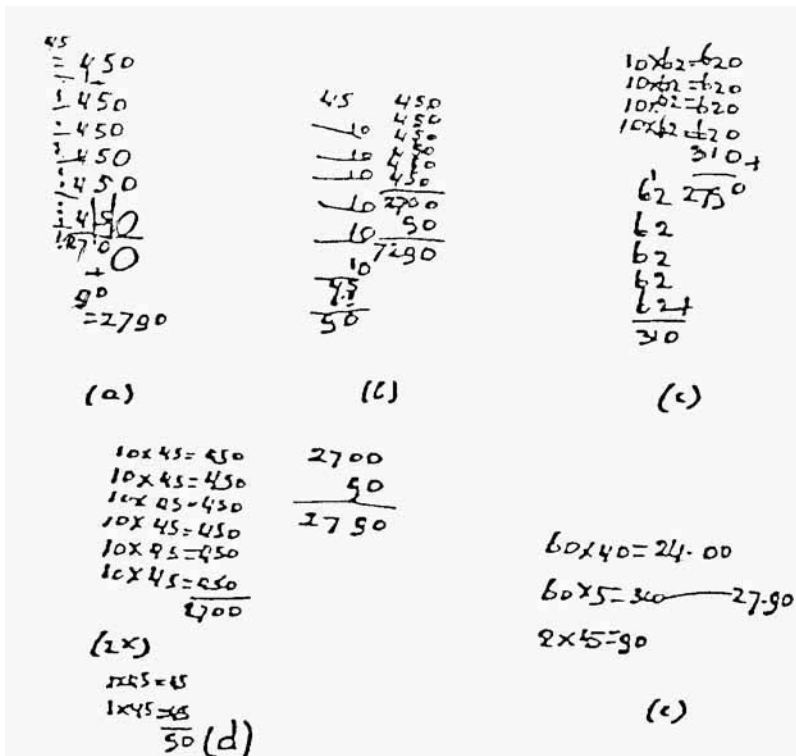 45
= 450
450
450
450
450
450
2700
+
90
=2790
(a)
45 450
10 450
10 450
10 450
10 450
10 450
2700
90
2790
45
90
(b)
10x62=620
10x62=620
10x62=620
10x62=620
310+
62 2790
62
62
62
62+
310
(c)
10x45=450
10x45=450
10x45=450
10x45=450
10x45=450
10x45=450
2700
(2x)
1x45=45
1x45=45
90
(d)
2700
90
2790
60x40=24.00
60x5=300 27.90
2x45=90
(e)